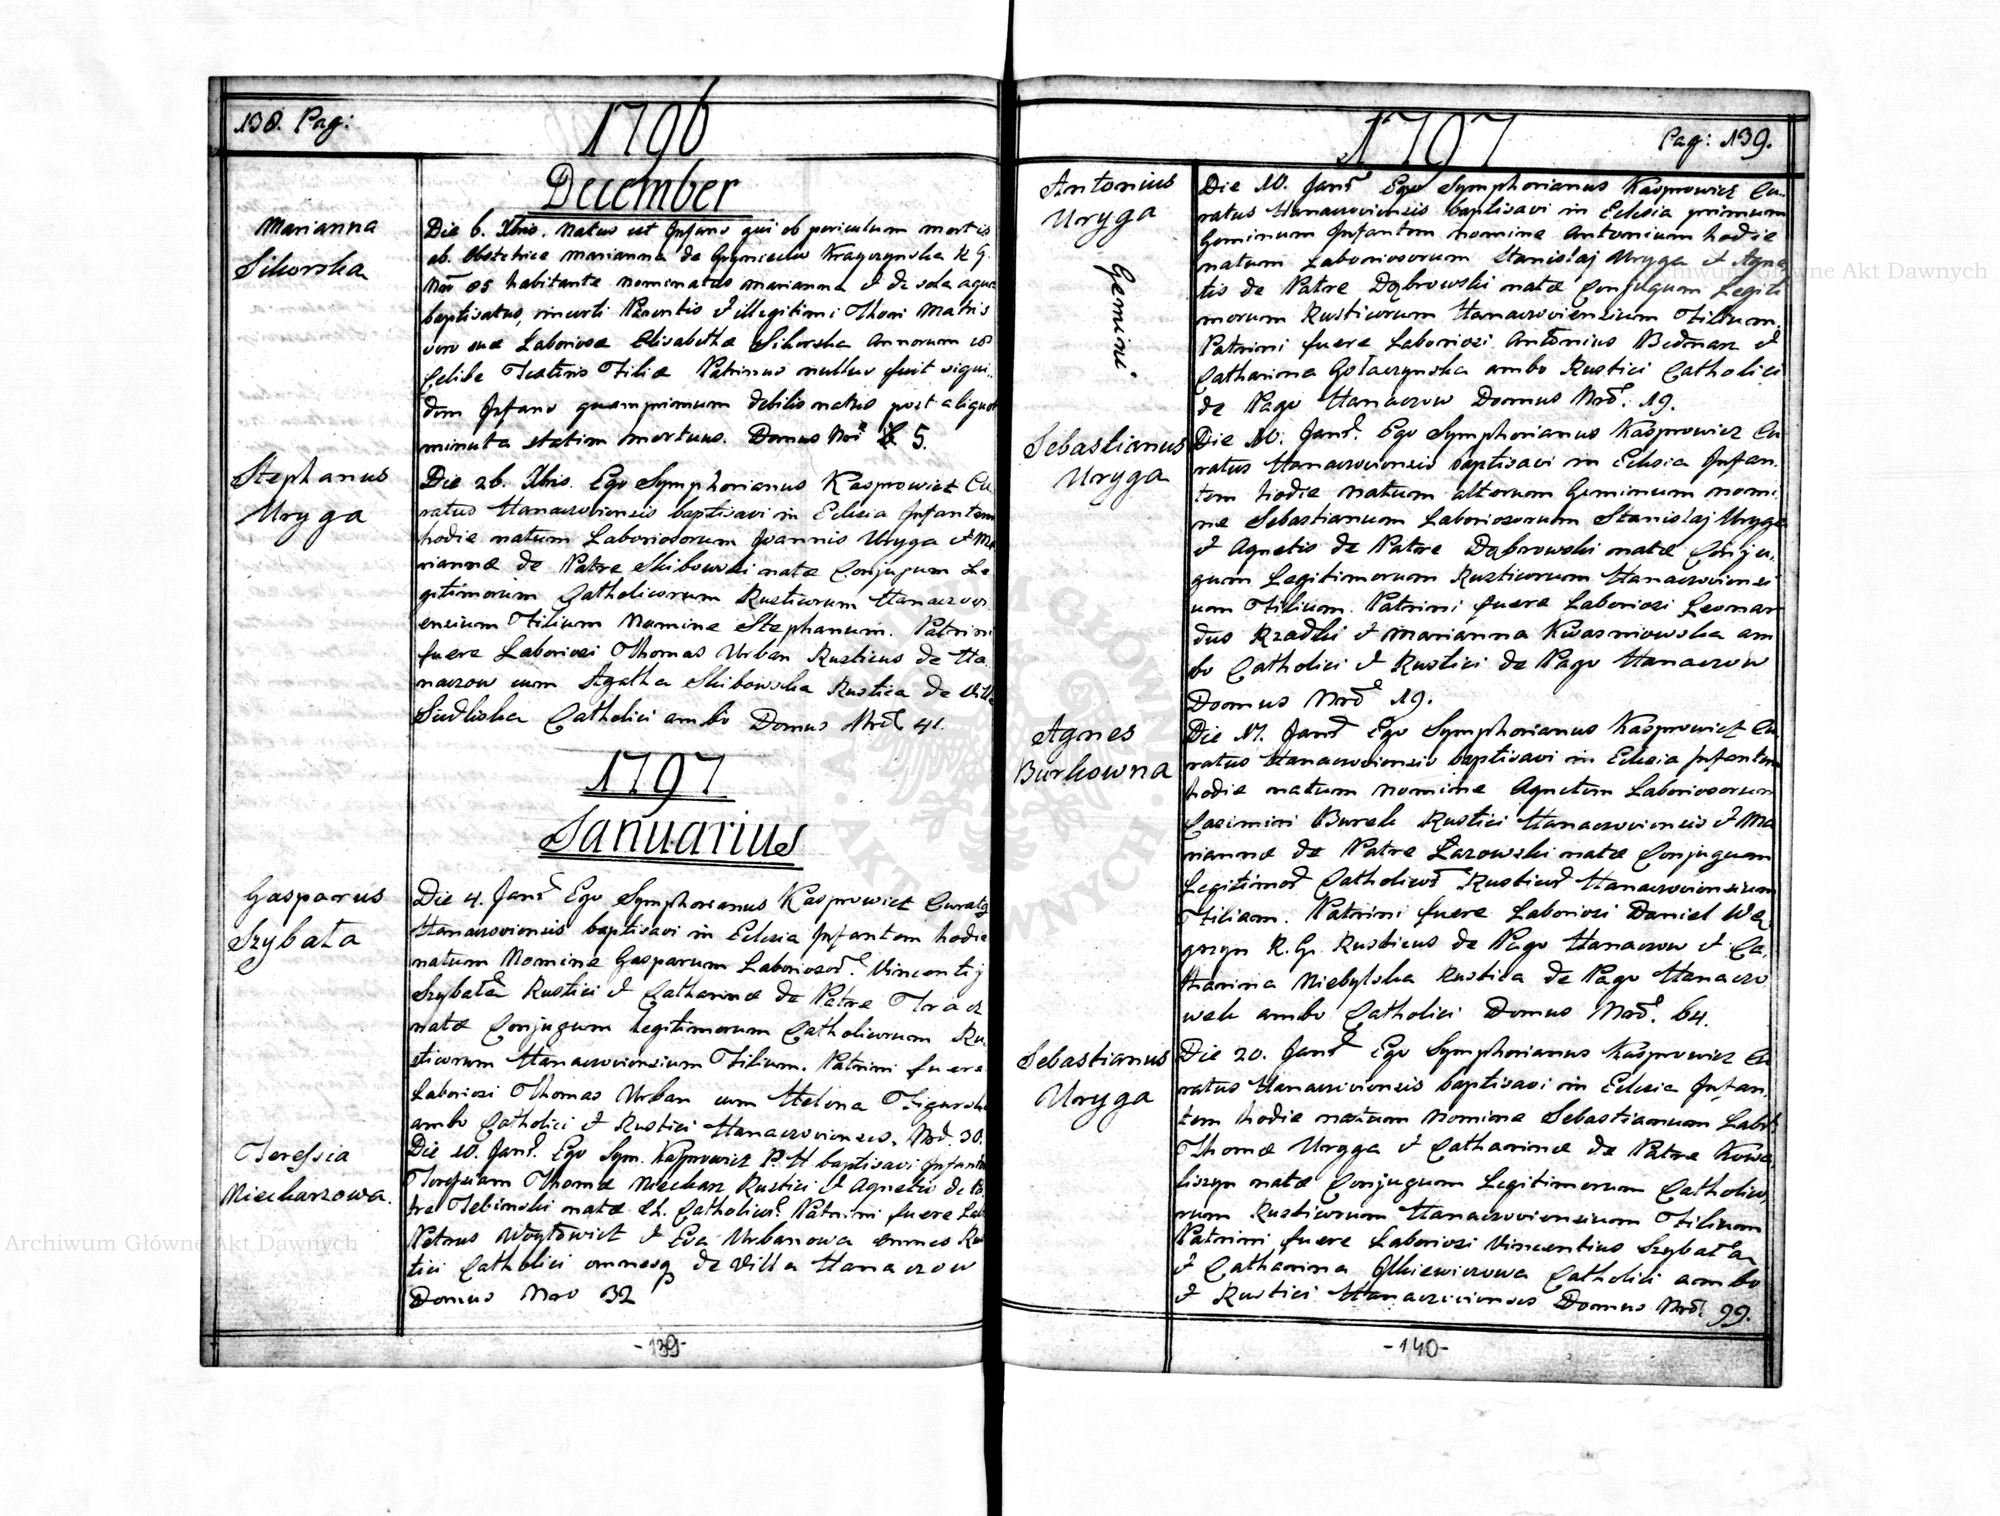 138. Pag:
1796
December
Marianna
Sikorska
Die 6. Xbris. Natus est Infans qui ob periculum mortis
ab Obstetrice Marianna de Krayczynska R. G.
habitante nominatus Marianna et de sola aqua
baptisatus, incerti Parentis et illegitimi Thori Matris
vero suæ Laboriosæ Elisabethæ Sikorska Annorum
Filiæ Patrinus nullus fuit sigui-
dem Infans quamprimum debilis natus post aliquot
minuta statim mortuus. Domus Nri 5.
Stephanus
Uryga
Die 26. Xbris. Ego Symphorianus Kasprowicz Cu
ratus Hanaczoviensis baptisavi in Eclesia Infantem
hodie natum Laboriosorum Joannis Uryga et Ma
riannæ de Patre Skibowski natæ Conjugum Le
gitimorum Catholicorum Rusticorum Hanaczovi
ensium Filium Nomine Stephanum. Patrini
fuere Laboriosi Thomas Urban Rusticus de Ha
naczow cum Agatha Skibowska Rustica de Villa
Siedliska Catholici ambo Domus Nro 41.
1797
Januarius
Gasparus
Szybała
Die 4. Janr Ego Symphorianus Kasprowicz Curatg
Hanaczoviensis baptisavi in Eclesia Infantem hodie
natum Nomine Gasparum Laborioso. Vincentij
Szybała Rustici et Catharinæ de Patre Tracz
natæ Conjugum legitimorum Catholicorum Ru
sticorum Hanaczoviensium Filium. Patrini fuere
Laboriosi Thomas Urban cum Helena Figurska
ambo Catholici et Rustici Hanaczovienses. Nro. 30.
Teressia
Miekarzowa.
Die 10. Janr. Ego Sym. Kasprowicz P. H baptisavi Infante
Teressiam Thomæ Miekarz Rustici et Agnetis de Pa
tre Tebinski natæ Catholico. Patrini fuere Lab
Petrus Woytowicz et Eva Urbanowa omnes Rus
tici Catholici omnesq de Villa Hanaczow
Domus Nro 32
-139-
1797
Pag: 139.
Antonius
Uryga
Gemini
Die 10. Janr Ego Symphorianus Kasprowicz Cu-
ratus Hanaczoviensis baptisavi in Eclesia primum
Geminum Infantem nomine Antonium hodie
natum Laboriosorum Stanislaj Uryga et Agne
tis de Patre Dąbrowski natæ Conjugum Legiti
morum Rusticorum Hanaczoviensium Filium.
Patrini fuere Laboriosi Antonius Bednarz et
Catharina Gołaczynska ambo Rustici Catholici
de Pago Hanaczow Domus Nro. 19.
Sebastianus
Uryga
Die 10. Janr. Ego Symphorianus Kasprowicz Cu
ratus Hanaczoviensis baptisavi in Eclesia Infan-
tem hodie natum alterum Geminum nomi-
ne Sebastianum Laboriosorum Stanislaj Uryga
et Agnetis de Patre Dąbrowski natæ Conju-
gum Legitimorum Rusticorum Hanaczoviensi
um Filium. Patrini fuere Laboriosi Leonar
dus Rzadki et Marianna Kwasniowska am
bo Catholici et Rustici de Pago Hanaczow
Domus Nro 19.
Agnes
Burkowna
Die 17. Janr Ego Symphorianus Kasprowicz Cu
ratus Hanaczoviensis baptisavi in Eclesia Infantem
hodie natum nomine Agnetem Laboriosorum
Casimiri Burek Rustici Hanaczoviensis et Ma
riannæ de Patre Łazowski natæ Conjugum
Legitimo Catholico Rustico Hanaczoviensium
Filiam. Patrini fuere Laboriosi Daniel Wę
grzyn R. G. Rusticus de Pago Hanaczow et Ca
tharina Niebylska Rustica de Pago Hanaczo
wek ambo Catholici Domus Nro. 64.
Sebastianus
Uryga
Die 20. Janr Ego Symphorianus Kasprowicz Cu
ratus Hanaczoviensis baptisavi in Eclesia Infan-
tem hodie natum Nomine Sebastianum Labor
Thomæ Uryga et Catharinæ de Patre Kowa
liszyn natæ Conjugum Legitimorum Catholico
rum Rusticorum Hanaczoviensium Filium
Patrini fuere Laboriosi Vincentius Szybała
et Catharina Ilkiewiczowa Catholici ambo
et Rustici Hanaczovienses Domus Nro. 99.
-140-
Archiwum Główne Akt Dawnych
Archiwum Główne Akt Dawnych
ARCHIWUM GŁÓWNE · AKT DAWNYCH ·